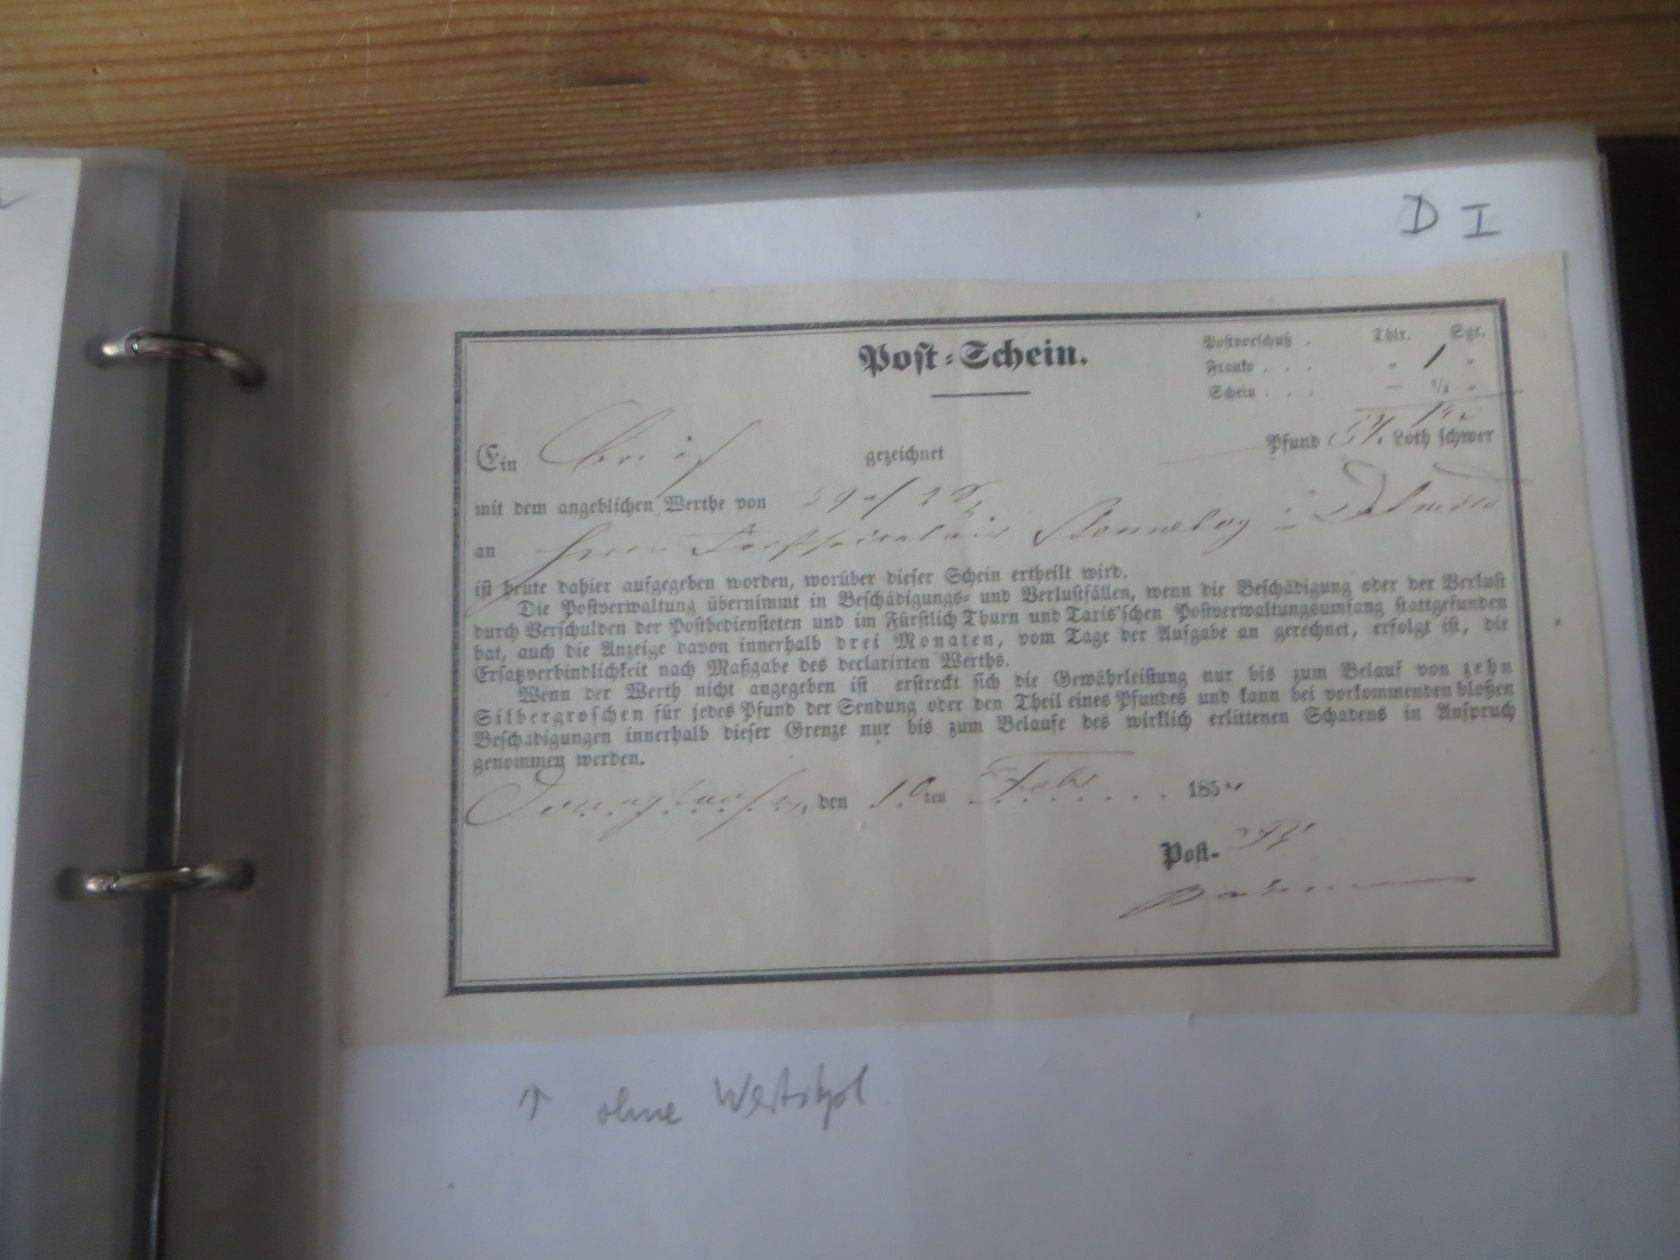 D I
Post-Schein.
Postvorschuß . Thlr. Sgr.
Franko . . . " 1 "
Schein . . . — ½ "
Ein Brief gezeichnet Pfund Loth schwer
mit dem angeblichen Werthe von
an Herrn
ist heute dahier aufgegeben worden, worüber dieser Schein ertheilt wird.
Die Postverwaltung übernimmt in Beschädigungs- und Verlustfällen, wenn die Beschädigung oder der Verlust
durch Verschulden der Postbediensteten und im Fürstlich Thurn und Taxis'schen Postverwaltungsumfang stattgefunden
hat, auch die Anzeige davon innerhalb drei Monaten, vom Tage der Aufgabe an gerechnet, erfolgt ist, die
Ersatzverbindlichkeit nach Maßgabe des declarirten Werths.
Wenn der Werth nicht angegeben ist erstreckt sich die Gewährleistung nur bis zum Belauf von zehn
Silbergroschen für jedes Pfund der Sendung oder den Theil eines Pfundes und kann bei vorkommenden bloßen
Beschädigungen innerhalb dieser Grenze nur bis zum Belaufe des wirklich erlittenen Schadens in Anspruch
genommen werden.
den 10ten Feb 185
Post-
↑ ohne